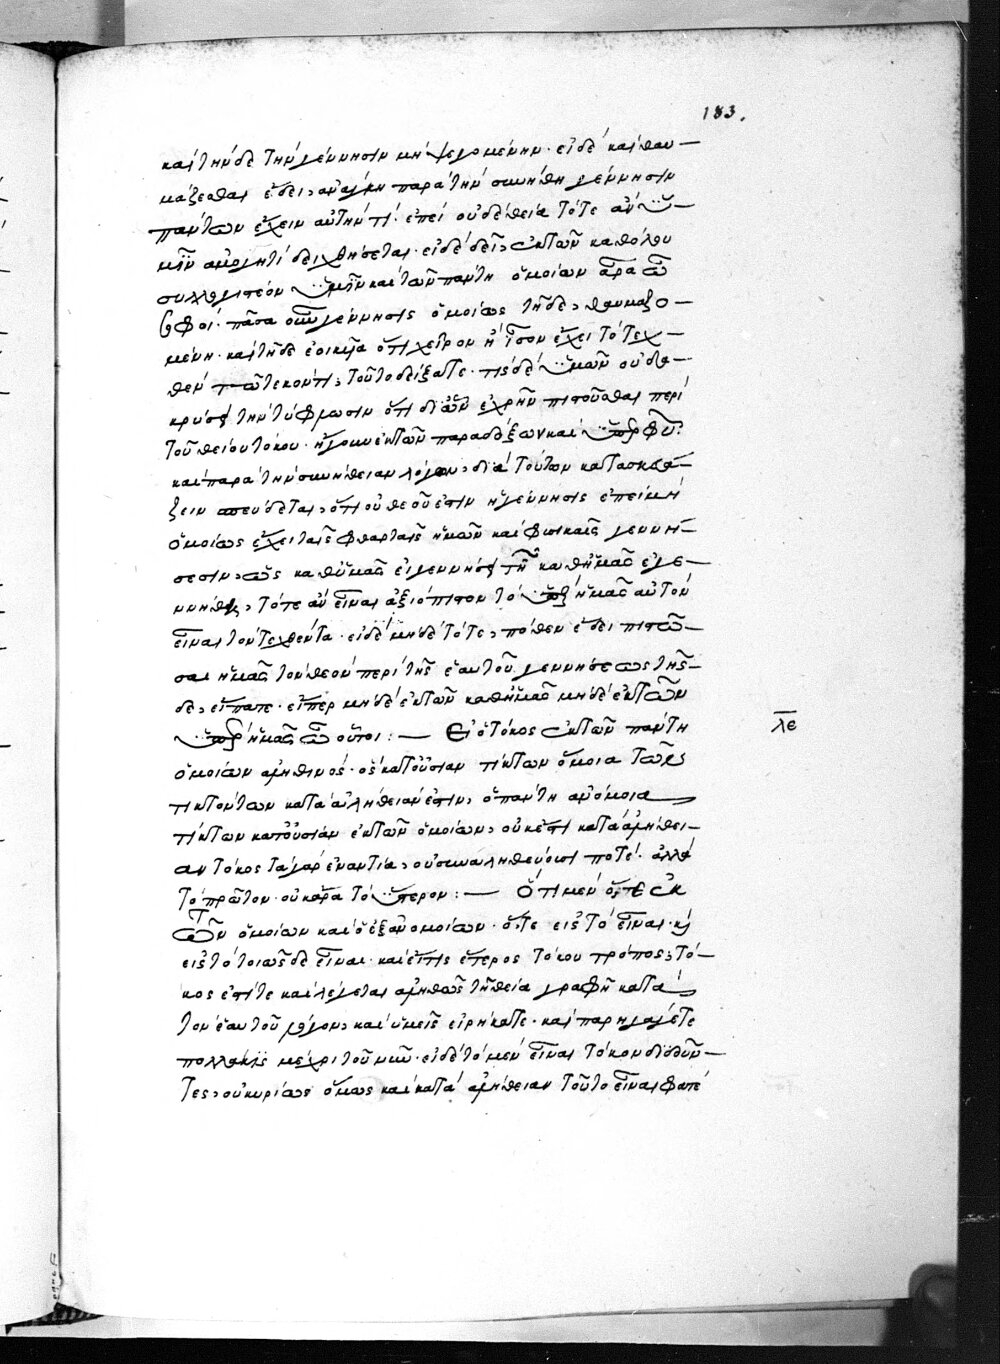 183.
καὶ τήνδε τὴν γέννησιν μὴ ψεγομένην. εἰ δὲ καὶ θαυ-
μάζεσθαι ἔδει, ἀνάγκη παρὰ τὴν συνήθη γέννησιν
πάντων ἔχειν αὐτήν τί. ἐπεὶ οὐδὲ θεία τότε ἀν
δειχθήσεται. εἰ δὲ δεῖ, ἐκ τῶν καθόλου
συλλογιστέον καὶ τῶν πάντη ὁμοίων ἄρα ὦ
σοφοί. πᾶσα οὖν γέννησις ὁμοίως τῇδε, θαυμαζο-
μένη. καὶ τῇδε ἐοικυῖα ὅτι χεῖρον ἢ ἶσον ἔχει τὸ τεχ-
θὲν τῶ τεκόντι, τοῦτο δείξατε. τίς δὲ ὑμῶν οὐδο-
τὴν τύφλωσιν ὅτι δι' ὧν ἐχρῆν πιστοῦσθαι περὶ
τοῦ θείου τόκου. ἤγουν ἐκ τῶν παραδόξων καὶ ὑπὲρ φύσιν
καὶ παρὰ τὴν συνήθειαν λόγων, διὰ τούτων κατασκευά-
ζειν σπεύδεται, ὅτι οὐ θεοῦ ἐστιν ἡ γέννησις ἐπεὶ μὴ
ὁμοίως ἔχει ταῖς φθαρταῖς ἡμῶν καὶ φυσικαῖς γεννή-
σεσιν, ὡς καθ' ἡμᾶς εἰ γεννήσει τῇ καθ' ἡμᾶς ἐγε-
ννήθη, τότε ἂν εἶναι ἀξιόπιστον τὸ ὑπὲρ ἡμᾶς αὐτὸν
εἶναι τὸν τεχθέντα. εἰ δὲ μηδὲ τότε, πόθεν ἔδει πιστῶ-
σαι ἡμᾶς τὸν θεὸν περὶ τῆς ἑαυτοῦ γεννήσεως τῆς-
δε, εἴπατε. εἴπερ μηδὲ ἐκ τῶν καθ' ἡμᾶς μηδὲ ἐκ τῶν
ὑπὲρ ἡμᾶς ὦ οὗτοι :— Εἰ ὁ τόκος ἐκ τῶν πάντη
λε
ὁμοίων ἀληθινός. ὁ κατ' οὐσίαν τίκτων ὅμοια τῶς
τικτόντων κατὰ ἀλήθειάν ἐστιν, ὁ πάντη ἀνόμοια
τίκτων κατ' οὐσίαν ἐκ τῶν ὁμοίων, οὐκ ἔστι κατὰ ἀλήθει-
αν τόκος τὰ γὰρ ἐναντία, οὐ συναληθεύουσι ποτέ. ἀλλὰ
τὸ πρῶτον. οὐκ ἄρα τὸ ὕστερον :— Ὅτι μὲν ὅ,τε ἐκ
τῶν ὁμοίων καὶ ὁ ἐξ ἀνομοίων. ὅ,τε εἰς τὸ εἶναι. καὶ
εἰς τὸ τοιῶσδε εἶναι. καὶ εἴ τις ἕτερος τόκου τρόπος, τό-
κος ἐστί τε καὶ λέγεται ἀληθῶς τῇ θεία γραφῇ κατὰ
τὸν ἑαυτοῦ λόγον, καὶ ὑμεῖς εἰρήκατε. καὶ παρηγάγετε
πολλάκις μέχρι τοῦ νῦν. εἰ δὲ τὸ μὲν εἶναι τόκον διδοῦν-
τες, οὐ κυρίως ὅμως καὶ κατὰ ἀλήθειαν τοῦτο εἶναι φατέ